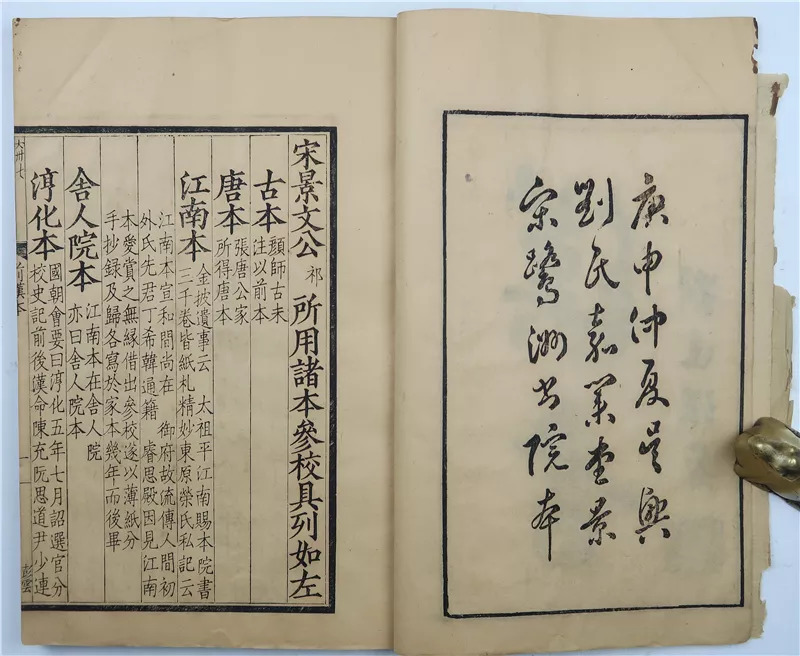 庚申仲夏吳興
劉氏嘉業堂景
宋鷺洲書院本
宋景文公祁所用諸本參校具列如左
古本
顏師古未
注以前本
唐本
張唐公家
所得唐本
江南本
金坡遺事云 太祖平江南賜本院書
三千卷皆紙札精妙東原榮氏私記云
江南本宣和間尚在 御府故流傳人間初
外氏先君丁希韓通籍 睿思殿因見江南
本愛賞之無緣借出參校遂以薄紙分
手抄錄及歸各寫於家本幾年而後畢
舍人院本
江南本在舍人院
亦曰舍人院本
淳化本
國朝會要曰淳化五年七月詔選官分
校史記前後漢命陳充阮思道尹少連